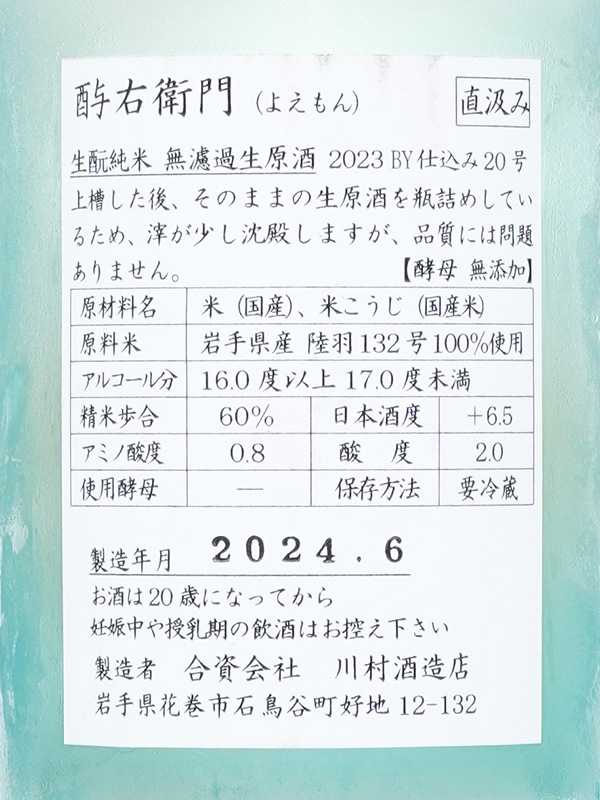 酉与右衛門 (よえもん) 直汲み
生酛純米 無濾過生原酒 2023 BY仕込み20号
上槽した後、そのままの生原酒を瓶詰めしてい
るため、滓が少し沈殿しますが、品質には問題
ありません。 【酵母 無添加】
原材料名 米(国産)、米こうじ(国産米)
原料米 岩手県産 陸羽132号100%使用
アルコール分 16.0度以上17.0度未満
精米歩合 60% 日本酒度 +6.5
アミノ酸度 0.8 酸 度 2.0
使用酵母 — 保存方法 要冷蔵
製造年月 2024.6
お酒は20歳になってから
妊娠中や授乳期の飲酒はお控え下さい
製造者 合資会社 川村酒造店
岩手県花巻市石鳥谷町好地12-132